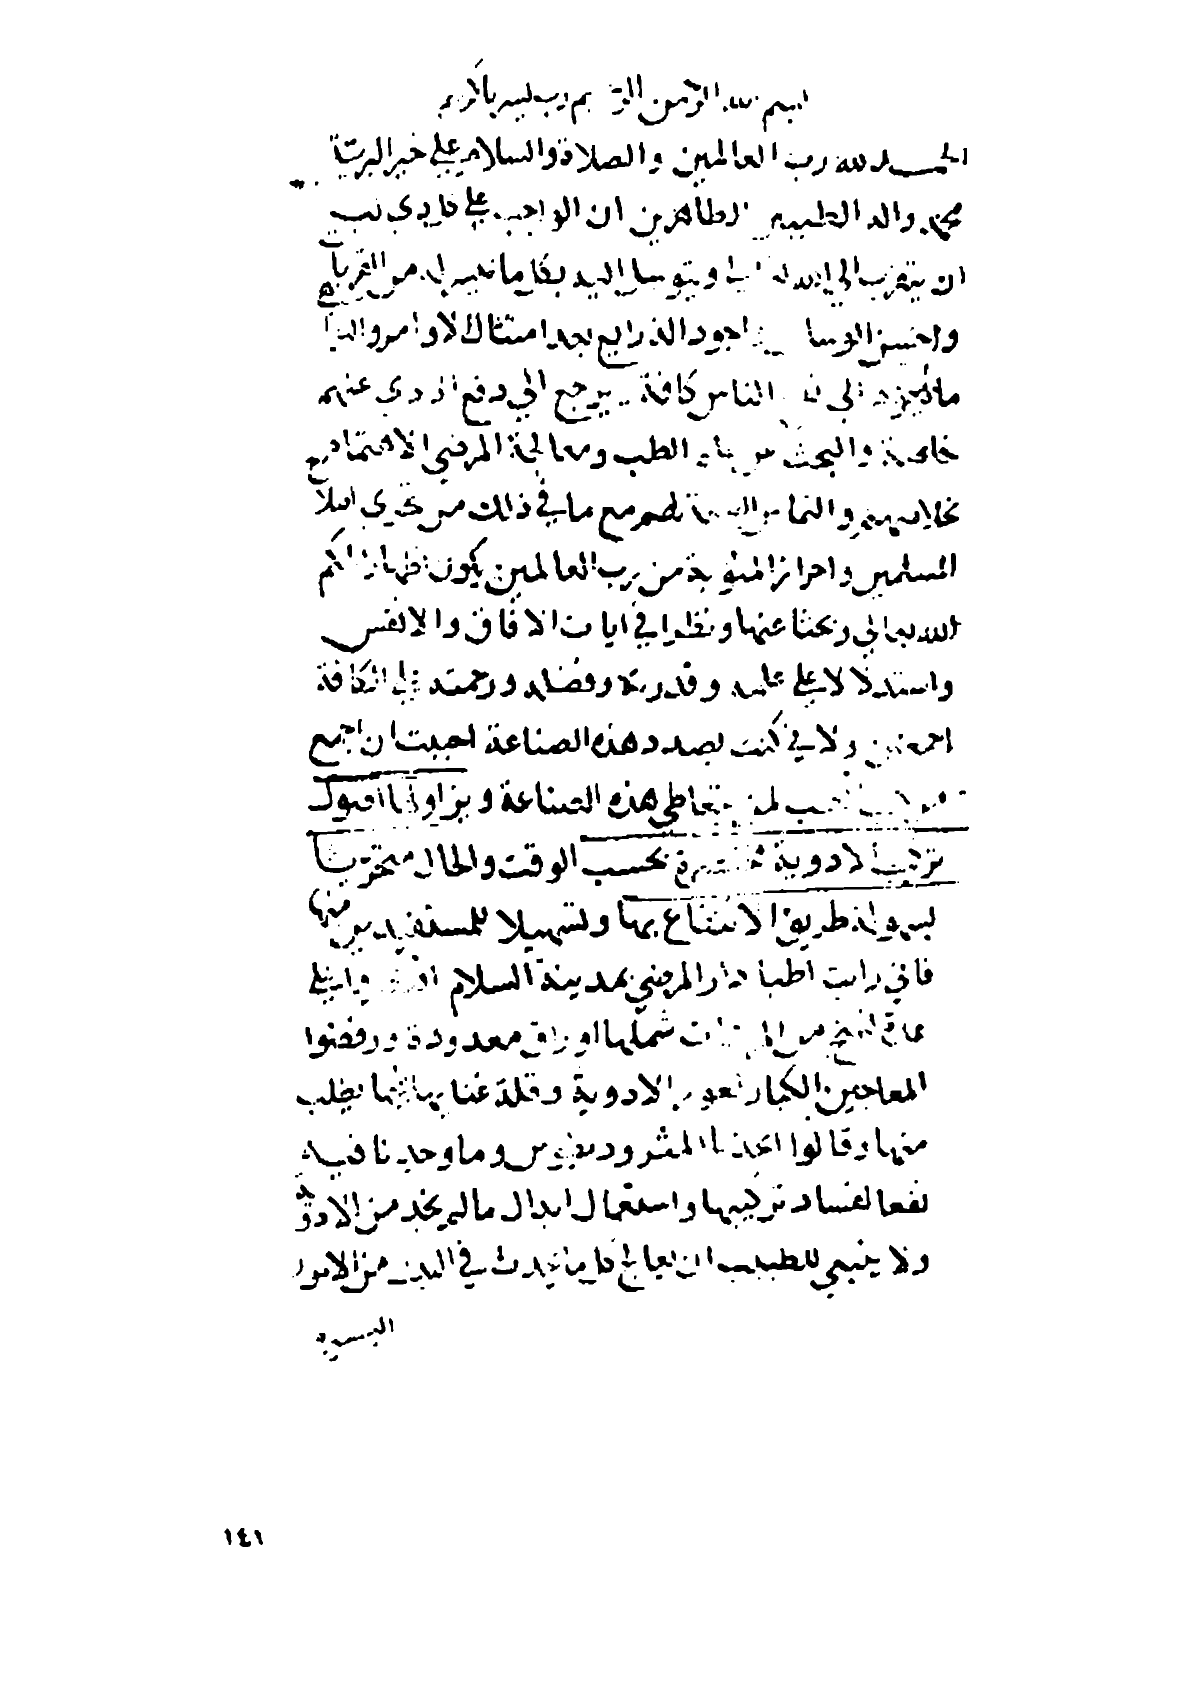 بسم الله الرحمن الرحيم رب يسر يا كريم
الحمد لله رب العالمين والصلاة والسلام على خير البرية
محمد واله الطيبين الطاهرين ان الواجب على كل ذي لب
ان يتقرب الى الله تعالى ويتوسل اليه بكل ما تيسر له من القربات
واحسن الوسائل واجود الذرايع بعد امتثال الاوامر والنواهي
ما الناس كافة يرجع الى دفع الاذى عنهم
خاصة والبحث عن باب الطب ومعالجة المرضى الاهتمام
بخلاصهم والتماس الصحة لهم مع ما في ذلك من تحري
المسلمين واحراز المثوبة من رب العالمين يكون اظهارا لحكم
الله تعالى وبحثا عنها ونظرا في ايات الافاق والانفس
واستدلالا على علمه وقدرته وفضله ورحمته على الكافة
اجمعين ولاني كنت بصدد هذه الصناعة احببت ان اجمع
لمن يتعاطى هذه الصناعة ويزاولها اصول
تركيب الادوية مختصرة بحسب الوقت والحال
ليسهل طريق الانتفاع بها وتسهيلا للمستفيدين منها
فاني رايت اطبا دار المرضى بمدينة السلام
من شملها اوراق معدودة ورفضوا
المعاجين الكبار الادوية وقلة
منها وقالوا اتخذنا المثروديطوس وما وجدنا فيه
نفعا لفساد تركيبها واستعمال ابدال ما لم يجد من الادوية
ولا ينبغي للطبيب ان يعالج كل ما يحدث في البدن من الامور
اليسيرة
١٤١